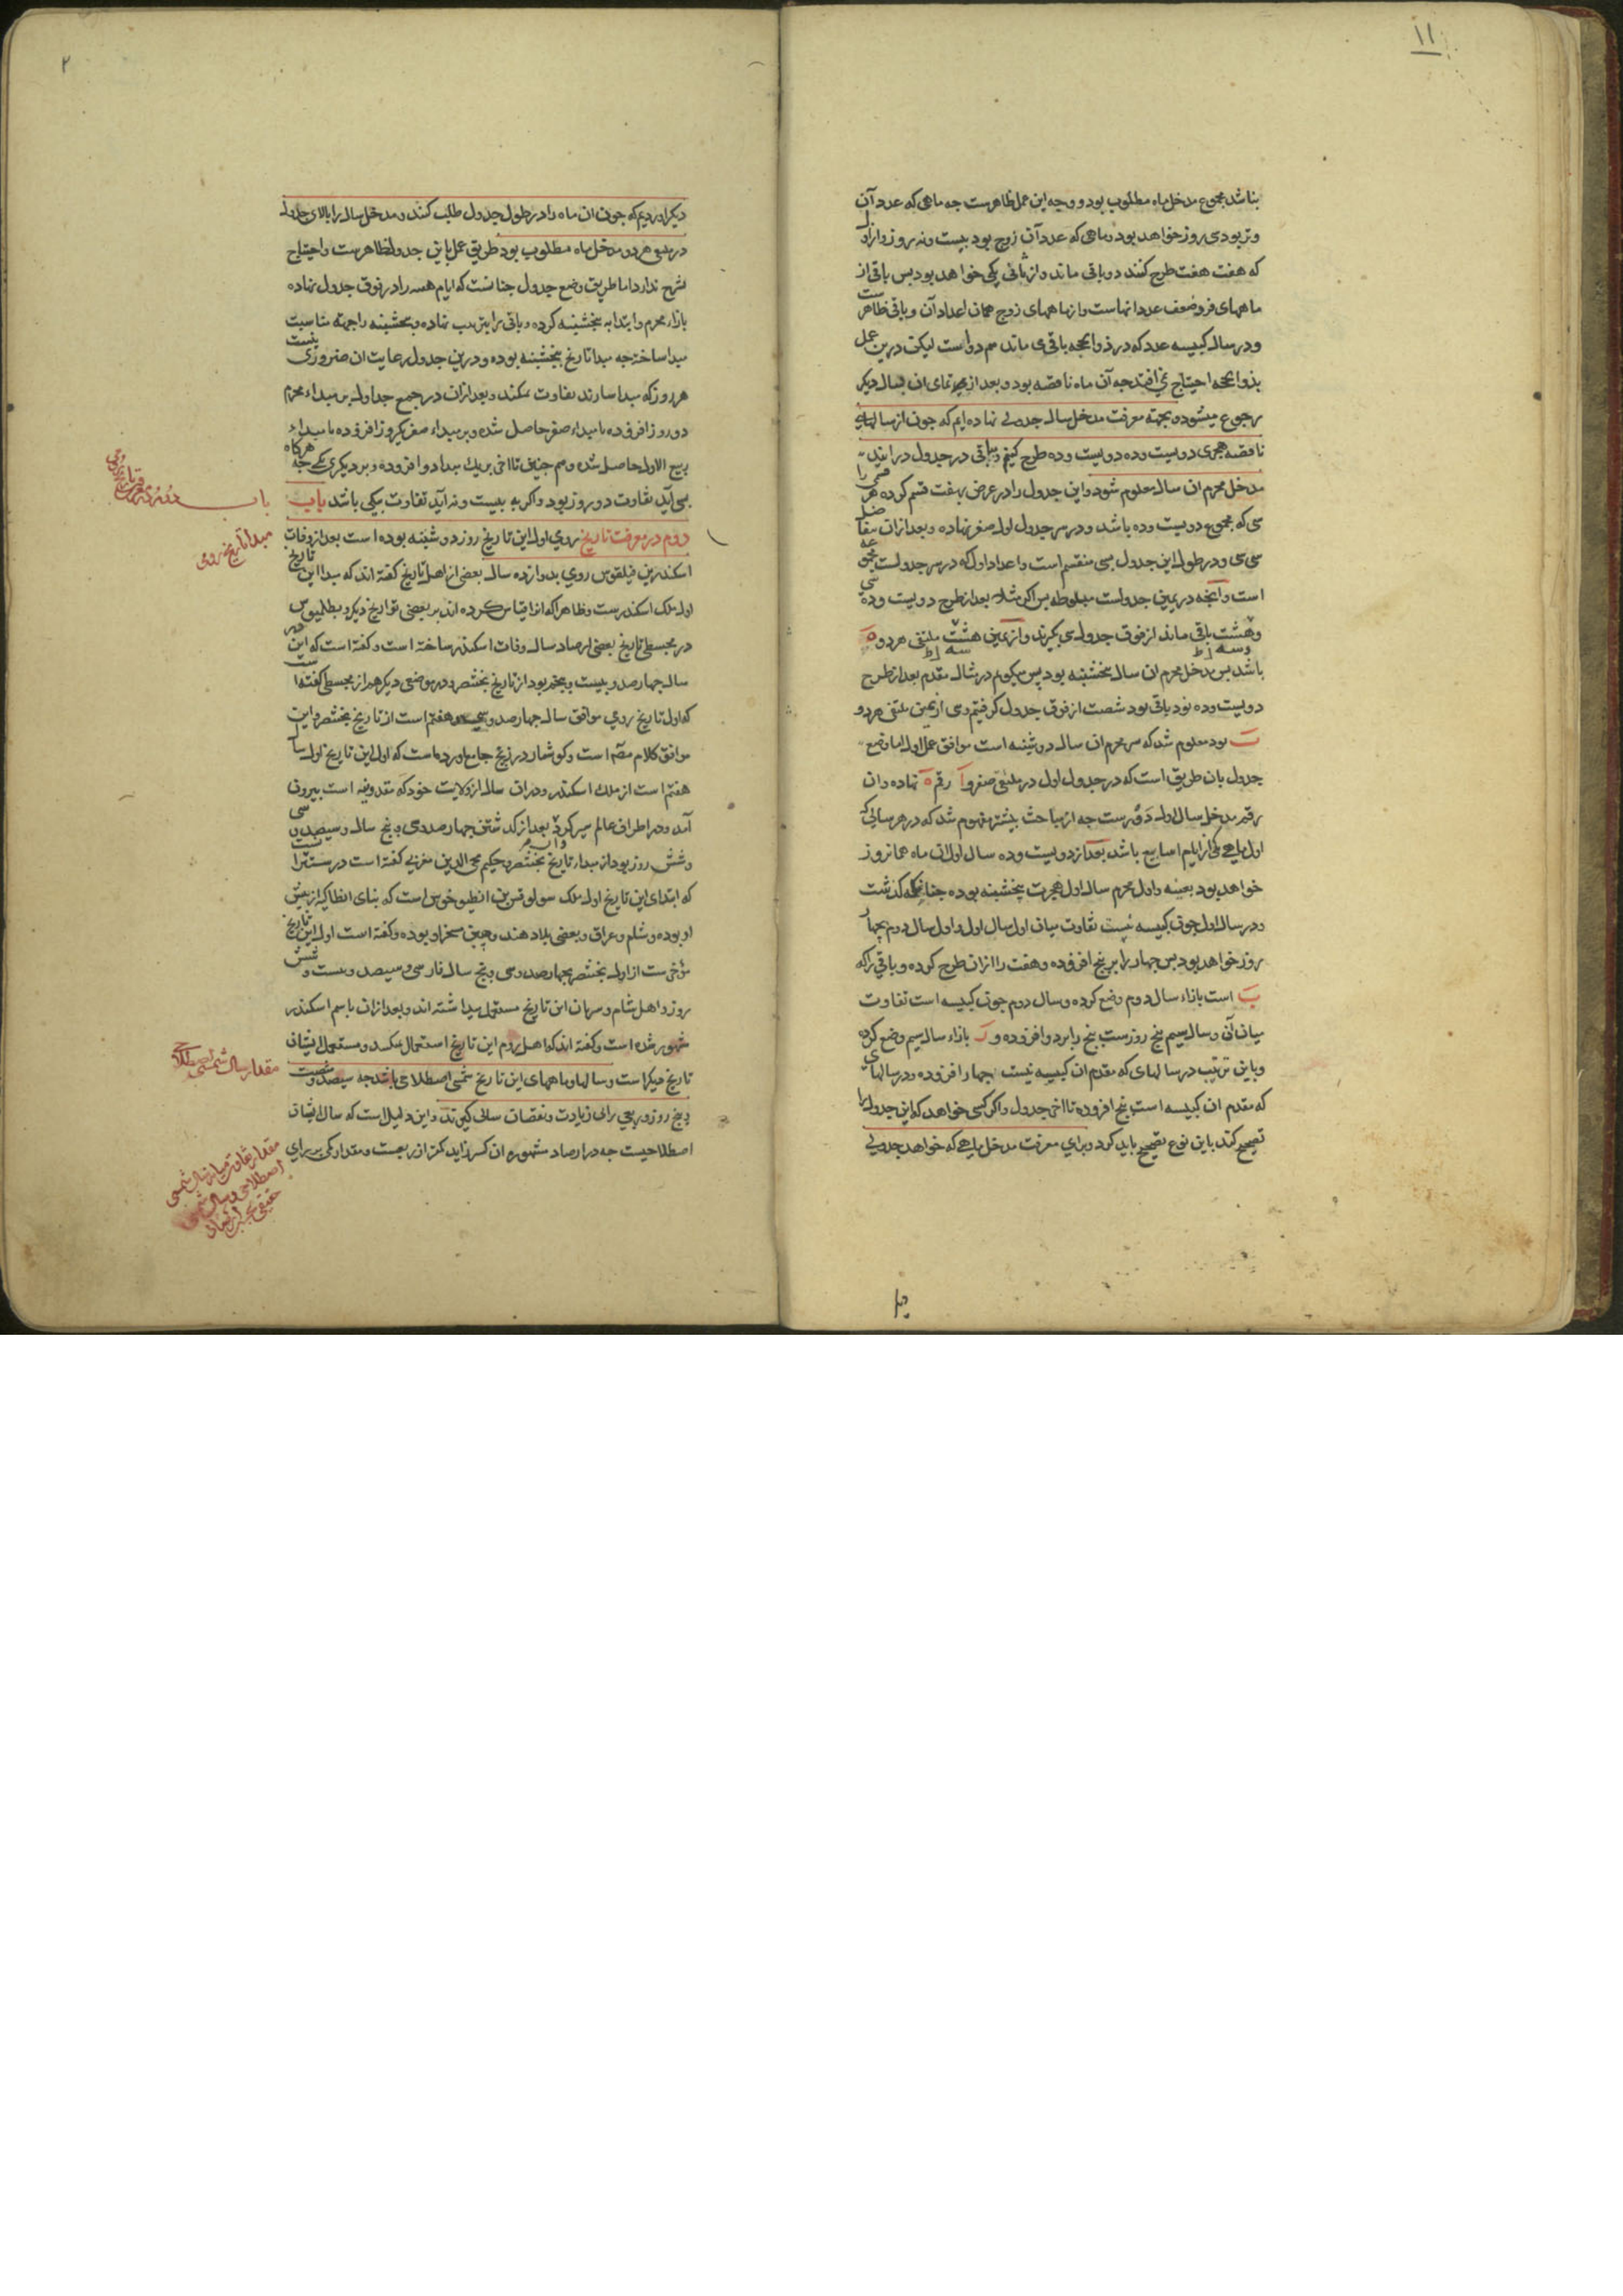 ۱۱
بناشد مجموع مدخل ماه مطلوب بود و وجه این عمل ظاهرست جه ماهی که عدد آن
وتر بود سی روز خواهد بود و ماهی که عدد آن زوج بود بیست و نه روز و از اول
که هفت هفت طرح کنند دو باقی ماند و از ثانی یکی خواهد بود بس باقی از
ماههای فرد ضعف عدد انهاست و از ماههای زوج همان اعداد آن و باقی ظاهرست
و در سال کبیسه عدد که در ذوالحجه باقی می ماند هم دو است لیکن درین عمل
بذوالحجه احتیاج نمی افتد جه آن ماه ناقصه بود و بعد از تمامی ان بسال دیکر
رجوع میشود و بجهة معرفت مدخل سال جدولی نهاده ایم که جون از سالهای
ناقصه هجری دویست و ده دویست و ده طرح کنیم و باقی در جدول در ایند
مدخل محرم ان سال معلوم شود و این جدول را در عرض بهفت قسم کرده هر قسمی را
سی که مجموع دویست و ده باشد و در سر جدول اول صفر نهاده و بعد از ان بتفاضل
سی سی و در طول این جدول بسی منقسم است و اعداد اول که در سر جدولست مجموعه
است و انچه در یمین جدولست مبسوطه بس اکر مثلا بعد از طرح دویست و ده سی
و هشت باقی ماند از فوق جدول سی بکیرند و از یمین هشت ملتقی هر دو ه
باشد بس مدخل محرم ان سال پنجشنبه بود پس میکویم در مثال مقدم بعد از طرح
دویست و ده نود باقی بود شصت از فوق جدول کرفتیم و سی از یمین ملتقی هر دو
ب بود معلوم شد که سر محرم ان سال دوشنبه است موافق عمل اول اما وضع
جدول بان طریق است که در جدول اول در ملتقی صفر و ا رقم ه نهاده و ان
رقم مدخل سال اول دورست جه از مباحث بیشتر مفهوم شد که در هر سالی که
اول ماهی یکی از ایام اسابیع باشد بعد از دویست و ده سال اول ان ماه همانروز
خواهد بود بعینه و اول محرم سال اول هجرت پنجشنبه بوده چنانکه کذشت
و در سال اول جون کبیسه نیست تفاوت میان اول سال اول و اول سال دوم بچهار
روز خواهد بود بس جهار را بر پنج افزوده و هفت را از ان طرح کرده و باقی را که
ب است بازاء سال دوم وضع کرده و سال دوم جون کبیسه است تفاوت
میان آن و سال سیم پنج روزست پنج را بر دو افزوده و ز بازاء سال سیم وضع کرده
و باین ترتیب در سالهای که مقدم ان کبیسه نیست جهار افزوده و در سالهای
که مقدم ان کبیسه است پنج افزوده تا اخر جدول و اکر کسی خواهد که این جدول را
تصحیح کند باین نوع تصحیح باید کرد و برای معرفت مدخل ماهی که خواهد جدولی
۲
دیکر اوردیم که جون ان ماه را در طول جدول طلب کنند و مدخل سال را بالای جدول
در ملتقی هر دو مدخل ماه مطلوب بود طریق عمل باین جدول ظاهرست و احتیاج
بشرح ندارد اما طریق وضع جدول جنانست که ایام هفته را در فوق جدول نهاده
بازاء محرم و ابتدا به پنجشنبه کرده و باقی را بترتیب نهاده و پنجشنبه را جهة مناسبت
مبدا ساخته جه مبدا تاریخ پنجشنبه بوده و درین جدول رعایت ان ضروری نیست
هر روز که مبدا سازند تفاوت نمیکند و بعد از ان در جمیع جداول بر مبداء محرم
دو روز افزوده تا مبداء صفر حاصل شده و بر مبداء صفر یکروز افزوده تا مبداء
ربیع الاول حاصل شده و هم جنین تا اخر بریک مبدا دو افزوده و بر دیکری یکی جه هر کاه
بسی آید تفاوت دو روز بود و اکر به بیست و نه آید تفاوت بیکی باشد باب
دوم در معرفت تاریخ رومی اول این تاریخ روز دوشنبه بوده است بعد از وفات
اسکندر بن فیلقوس رومی بدوازده سال بعضی از اهل تاریخ کفته اند که مبدا این تاریخ
اول ملک اسکندرست و ظاهرا که از قیاس کرده اند بر بعضی تواریخ دیکر و بطلمیوس
در مجسطی تاریخ بعضی ارصاد سال وفات اسکندر ساخته است و کفته است که این
سال جهارصد و بیست و پنجم بود از تاریخ بختنصر و در موضعی دیکر هم از مجسطی کفته است
که اول تاریخ رومی موافق سال جهارصد و سی و هفتم است از تاریخ بختنصر و این
موافق کلام مص است و کوشیار در زیج جامع اورده است که اول این تاریخ اول سال
هفتم است از ملک اسکندر و در ان سال از ولایت خود که مقدونیه است بیرون
آمد و در اطراف عالم سیر کرد بعد از کذشتن جهارصد و سی و پنج سال و سیصد و سی
و شش روز بود از مبداء تاریخ بختنصر و حکیم محی الدین مغربی کفته است درست انست
که ابتدای این تاریخ اول ملک سولوقس بن انطیوخوس است که بنای انطاکیه از پیش
او بوده و شام و عراق و بعضی بلاد هند و چین مسخر او بوده و کفته است اول این تاریخ
مؤخرست از اول بختنصر بجهارصد و سی و پنج سال فارسی و سیصد و بیست و شش
روز و اهل شام و سریان این تاریخ مستعمل میداشته اند و بعد از ان باسم اسکندر
مشهور شده است و کفته اند که اهل روم این تاریخ استعمال نمیکنند و مستعمل ایشان
تاریخ دیکر است و سالها و ماههای این تاریخ شمسی اصطلاحی باشد جه سیصد و شصت
و پنج روز و ربعی را بی زیادت و نقصان سالی کیرند و این دلیل است که سال ایشان
اصطلاحیست جه در ارصاد مشهوره ان کسر زاید کمتر از ربعست و مقدار کمی بر رای
باب
مبدا تاریخ رومی
مقدار سال شمسی اصطلاحی
مقدار تفاوت میانه سال شمسی
اصطلاحی و سال شمسی
حقیقی بحسب ارصاد